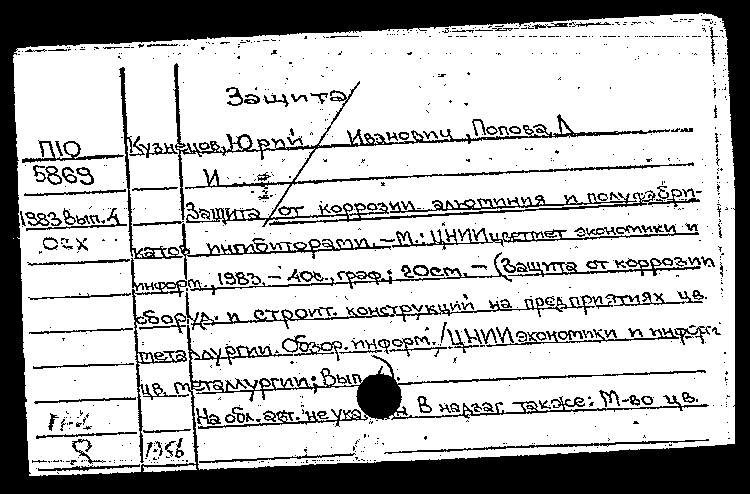 Защита
ПЮ Кузнецов, Юрий Иванович, Попова, Л
5869 И
1983 вып. 4 Защита от коррозии алюминия и полуфабри-
осх катов ингибиторами. – М.: ЦНИИцветмет экономики и
информ., 1983. – 40с., граф.; 20см. – (Защита от коррозии
оборуд. и строит. конструкций на предприятиях цв.
металлургии. Обзор. информ. / ЦНИИ экономики и информ
цв. металлургии; Вып.
На обл. авт. не указан. В надзаг. также: М-во цв.
8 1356